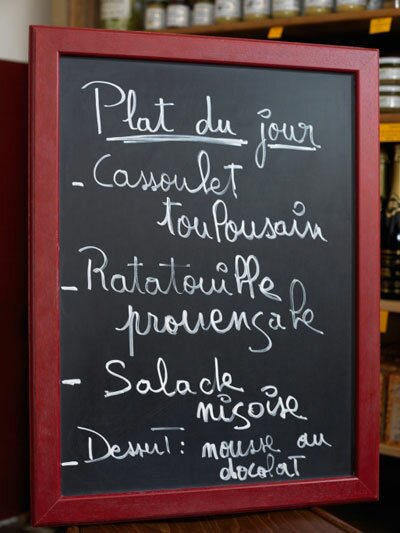 Plat du jour
- Cassoulet
toulousain
- Ratatouille
provençale
- Salade
niçoise
- Dessert : mousse au
chocolat